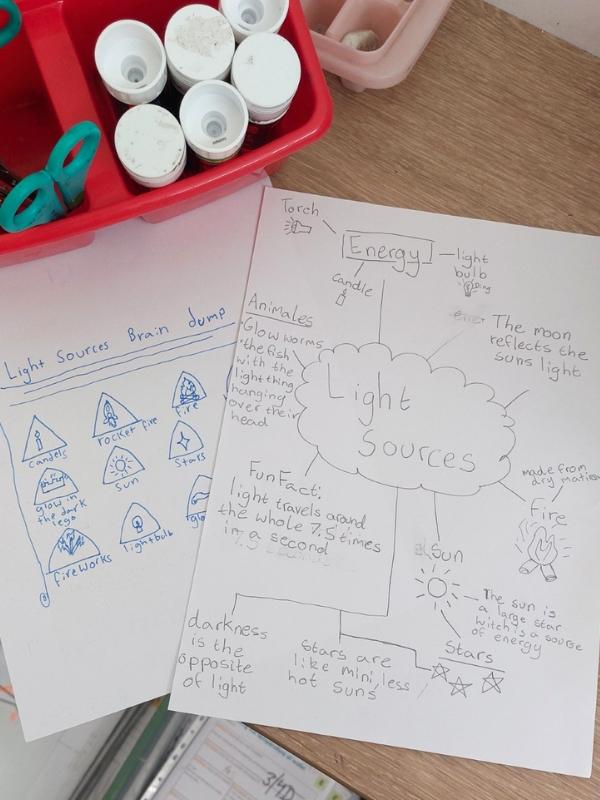 Torch
Energy
light
bulb
candle
The moon
reflects the
suns light
Animales
Glow worms
the fish
with the
light thing
hanging
over their
head
Light
Sources
made from
Fire
Fun Fact:
light travels around
the whole 7.5 times
in a second
Sun
The sun is
a large star
witch is a sourse
of energy
Stars
darkness
is the
opposite
of light
Stars are
like mini, less
hot suns
Light Sources Brain dump
candels
rocket fire
fire
glow in
the dark
lego
sun
stars
fireworks
lightbulb
3/4D